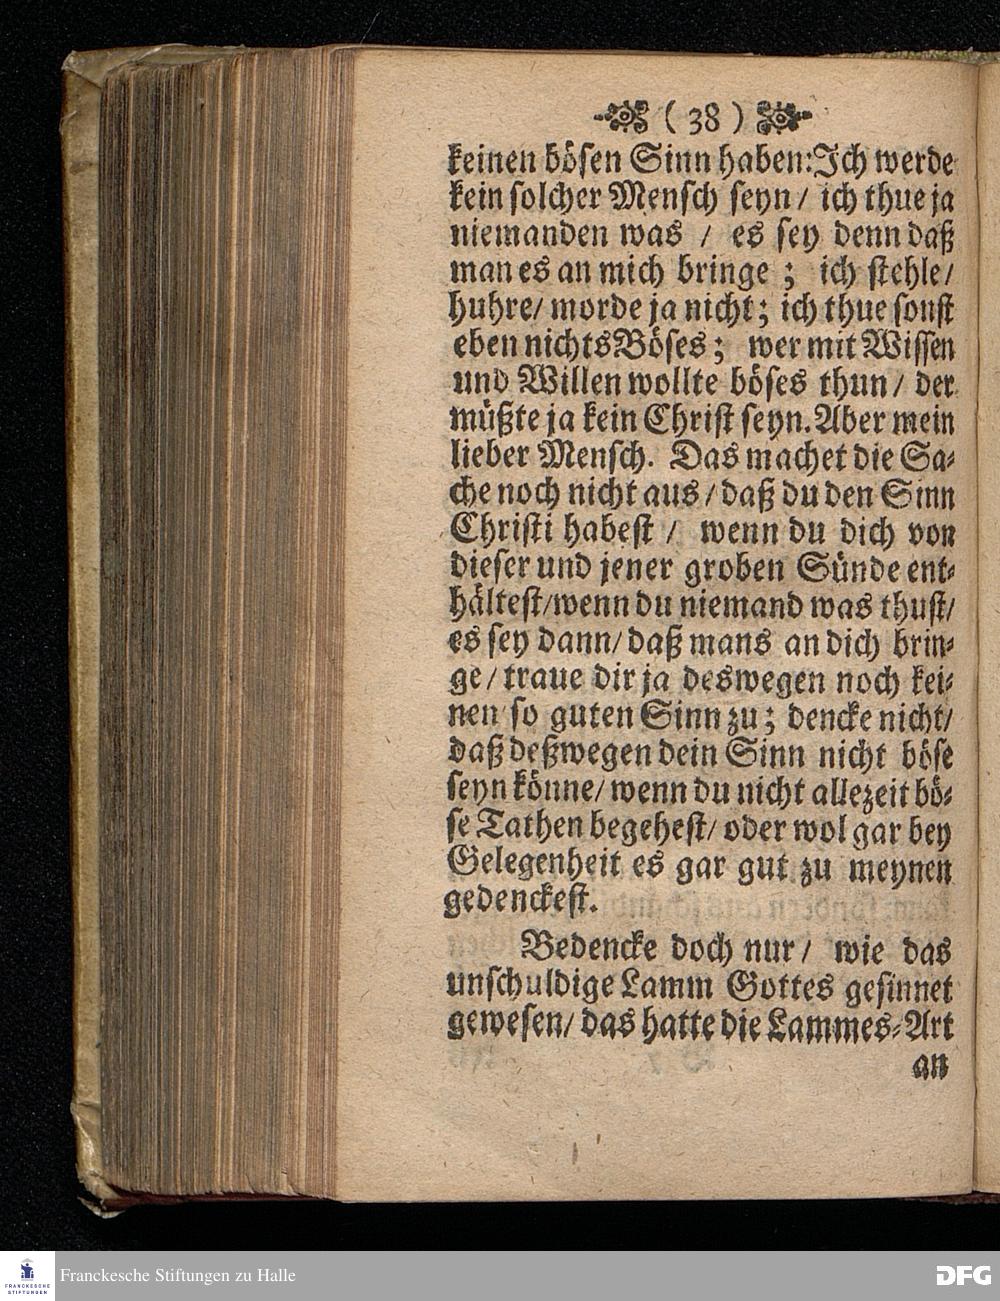 ( 38 )
keinen bösen Sinn haben: Ich werde
kein solcher Mensch seyn / ich thue ja
niemanden was / es sey denn daß
man es an mich bringe ; ich stehle /
huhre / morde ja nicht ; ich thue sonst
eben nichts Böses ; wer mit Wissen
und Willen wollte böses thun / der
müßte ja kein Christ seyn. Aber mein
lieber Mensch. Das machet die Sa-
che noch nicht aus / daß du den Sinn
Christi habest / wenn du dich von
dieser und jener groben Sünde ent-
hältest / wenn du niemand was thust /
es sey dann / daß mans an dich brin-
ge / traue dir ja deswegen noch kei-
nen so guten Sinn zu ; dencke nicht /
daß deßwegen dein Sinn nicht böse
seyn könne / wenn du nicht allezeit bö-
se Tathen begehest / oder wol gar bey
Gelegenheit es gar gut zu meynen
gedenckest.
Bedencke doch nur / wie das
unschuldige Lamm Gottes gesinnet
gewesen / das hatte die Lammes-Art
an
FRANCKESCHE
STIFTUNGEN
Franckesche Stiftungen zu Halle
DFG